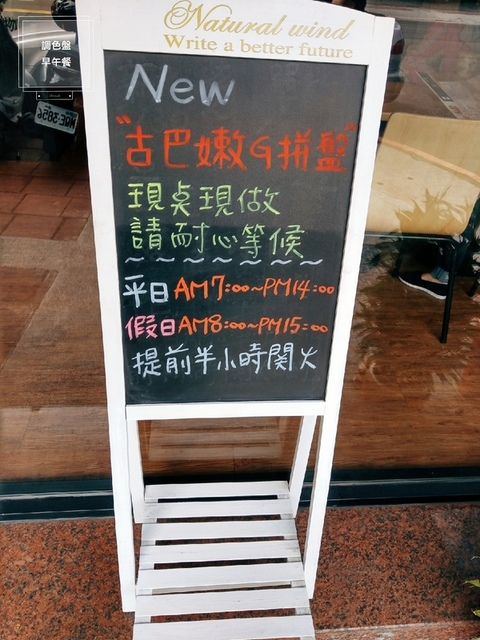 調色盤
早午餐
Natural wind
Write a better future
New
"古巴嫩G拼盤"
現桌現做
請耐心等候
~~~~~~~
平日AM7:00~PM14:00
假日AM8:00~PM15:00
提前半小時関火